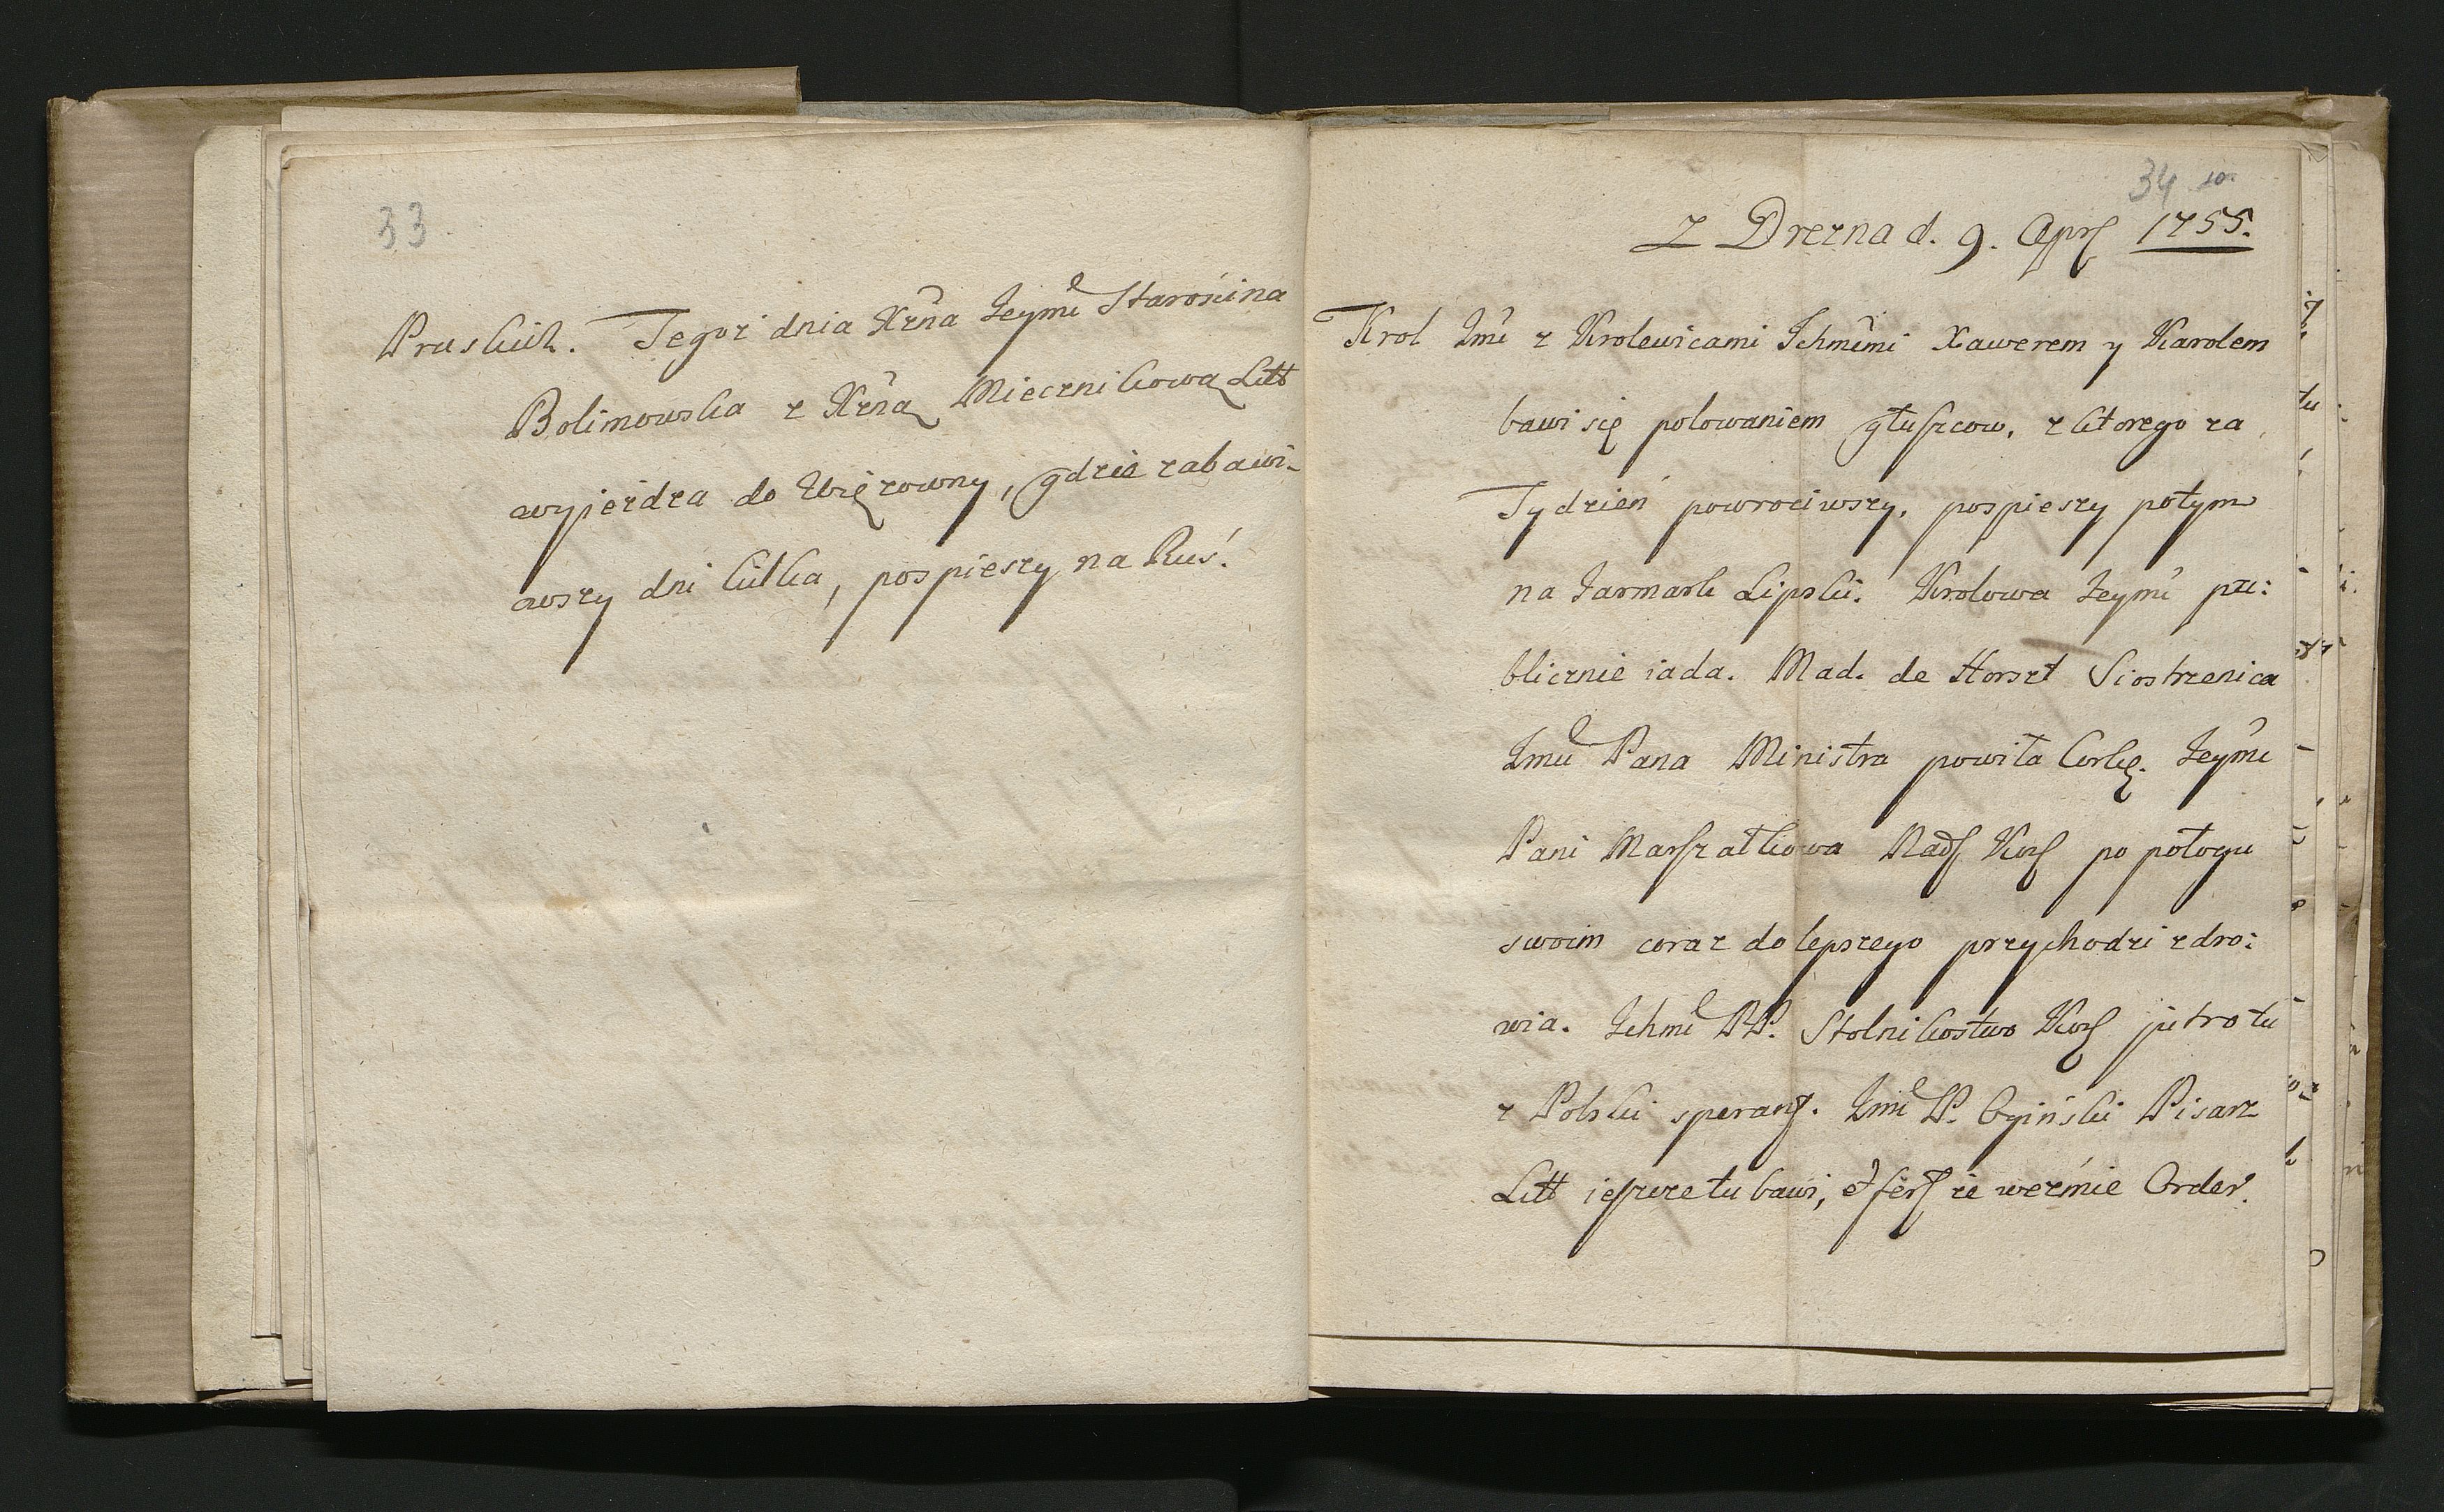 33
Pruskich. Tegoż dnia Xżna Jeymć Starościna
Bolimowska z Xżną Miecznikową Litt
wyjeżdza do Więzowny, gdzie zabawi-
wszy dni kilka, pospieszy na Ruś.
34
Z Drezna d. 9. Apr 1755.
Krol Jmć z Krolewicami Ichmćmi Xawerem y Karolem
bawi się polowaniem głuszcow, z ktorego za
Tydzień powrociwszy, pospieszy potym
na Jarmark Lipski. Krolowa Jeymć pu:
blicznie iada. Mad. de Horszt Siostrzenica
Jmć Pana Ministra powiła Corkę. Jeymć
Pani Marszałkowa Nad Kor po połogu
swoim coraz do lepszego przychodzi zdro:
wia. Ichmć PP. Stolnikostwo Kor jutro tu
z Polski sperant. Jmć P. Ogiński Pisarz
Litt ieszcze tu bawi, et fert że weźmie Order.